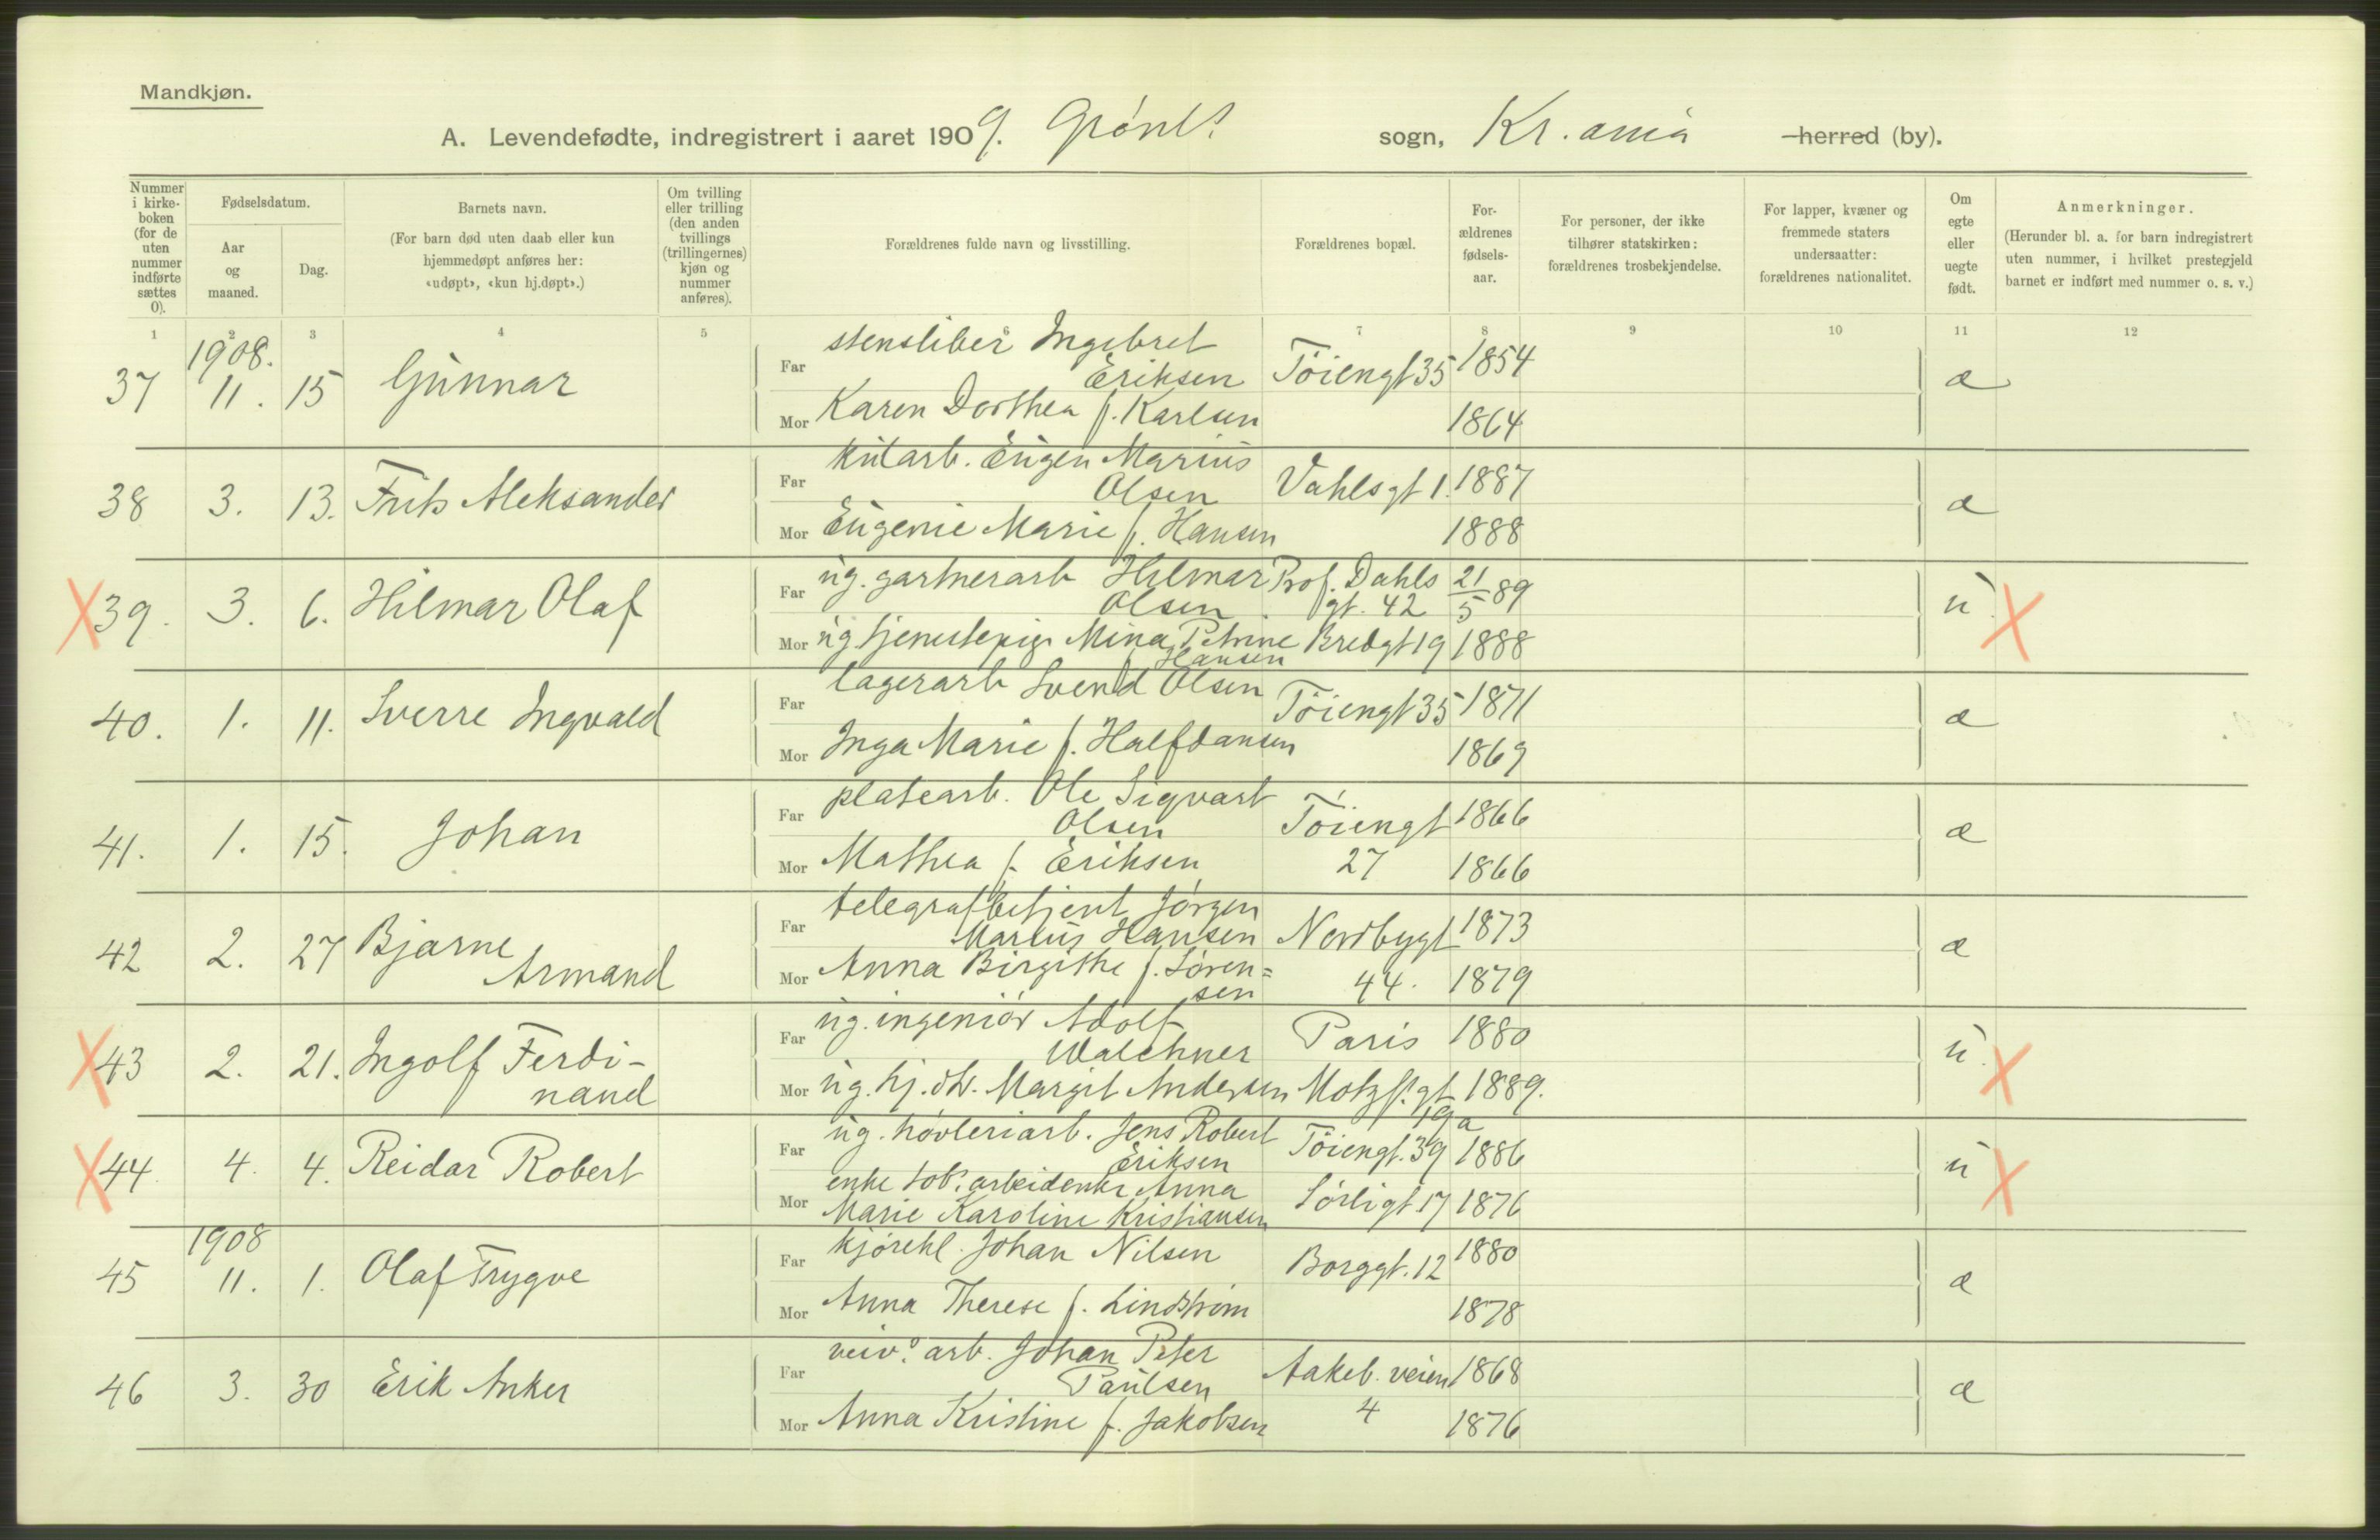 Mandkjøn.
A. Levendefødte, indregistrert i aaret 1909. Grønl. sogn, Kr.ania herred (by).
Nummer i kirke-boken (for de uten nummer indførte sættes 0).
Fødselsdatum.
Aar og maaned.
Dag.
Barnets navn.
(For barn død uten daab eller kun hjemmedøpt anføres her: «udøpt», «kun hj.døpt».)
Om tvilling eller trilling (den anden tvillings (trillingernes) kjøn og nummer anføres).
Forældrenes fulde navn og livsstilling.
Forældrenes bopæl.
For-ældrenes fødsels-aar.
For personer, der ikke tilhører statskirken: forældrenes trosbekjendelse.
For lapper, kvæner og fremmede staters undersaatter: forældrenes nationalitet.
Om egte eller uegte født.
Anmerkninger.
(Herunder bl. a. for barn indregistrert uten nummer, i hvilket prestegjeld barnet er indført med nummer o. s. v.)
1 2 3 4 5 6 7 8 9 10 11 12
1908.
37 11. 15 Gunnar
Far stensliber Ingebret Eriksen Töiengt 35 1854 æ
Mor Karen Dorthea f. Karlsen 1864
38 3. 13. Frits Aleksander
Far kularb. Eugen Marius Olsen Vahlsgt 1. 1887 æ
Mor Eugenie Marie f. Hansen 1888
X 39. 3. 6. Hilmar Olaf
Far ug. gartnerarb Hilmar Olsen Prof. Dahls gt. 42 21/5 89 u. X
Mor ug tjenestepige Mina Petrine Hansen Bredgt 19 1888
40. 1. 11. Sverre Ingvald
Far lagerarb Svend Olsen Töiengt 35 1871 æ
Mor Inga Marie f. Halfdansen 1869
41. 1. 15. Johan
Far platearb. Ole Sigvart Olsen Töiengt 27 1866 æ
Mor Mathea f. Eriksen 1866
42 2. 27 Bjarne Armand
Far telegrafbetjent Jørgen Marius Hansen Nordbygt 44. 1873 æ
Mor Anna Birgithe f. Sören=sen 1879
X 43 2. 21. Ingolf Ferdi-nand
Far ug. ingeniör Adolf Walchner Paris 1880 u. X
Mor ug. hj. dtr. Margit Andersen Motzf. gt 19a 1889.
X 44 4. 4. Reidar Robert
Far ug. høvleriarb. Jens Robert Eriksen Töiengt. 39 1886 u X
Mor enke tob. arbeiderske Anna Marie Karoline Kristiansen Sørligt 17 1876
1908
45 11. 1. Olaf Trygve
Far kjørekl. Johan Nilsen Borggt. 12 1880 æ
Mor Anna Therese f. Lindström 1878
46 3. 30 Erik Anker
Far veiv. arb. Johan Peter Paulsen Aakeb. veien 4 1868 æ
Mor Anna Kristine f. Jakobsen 1876